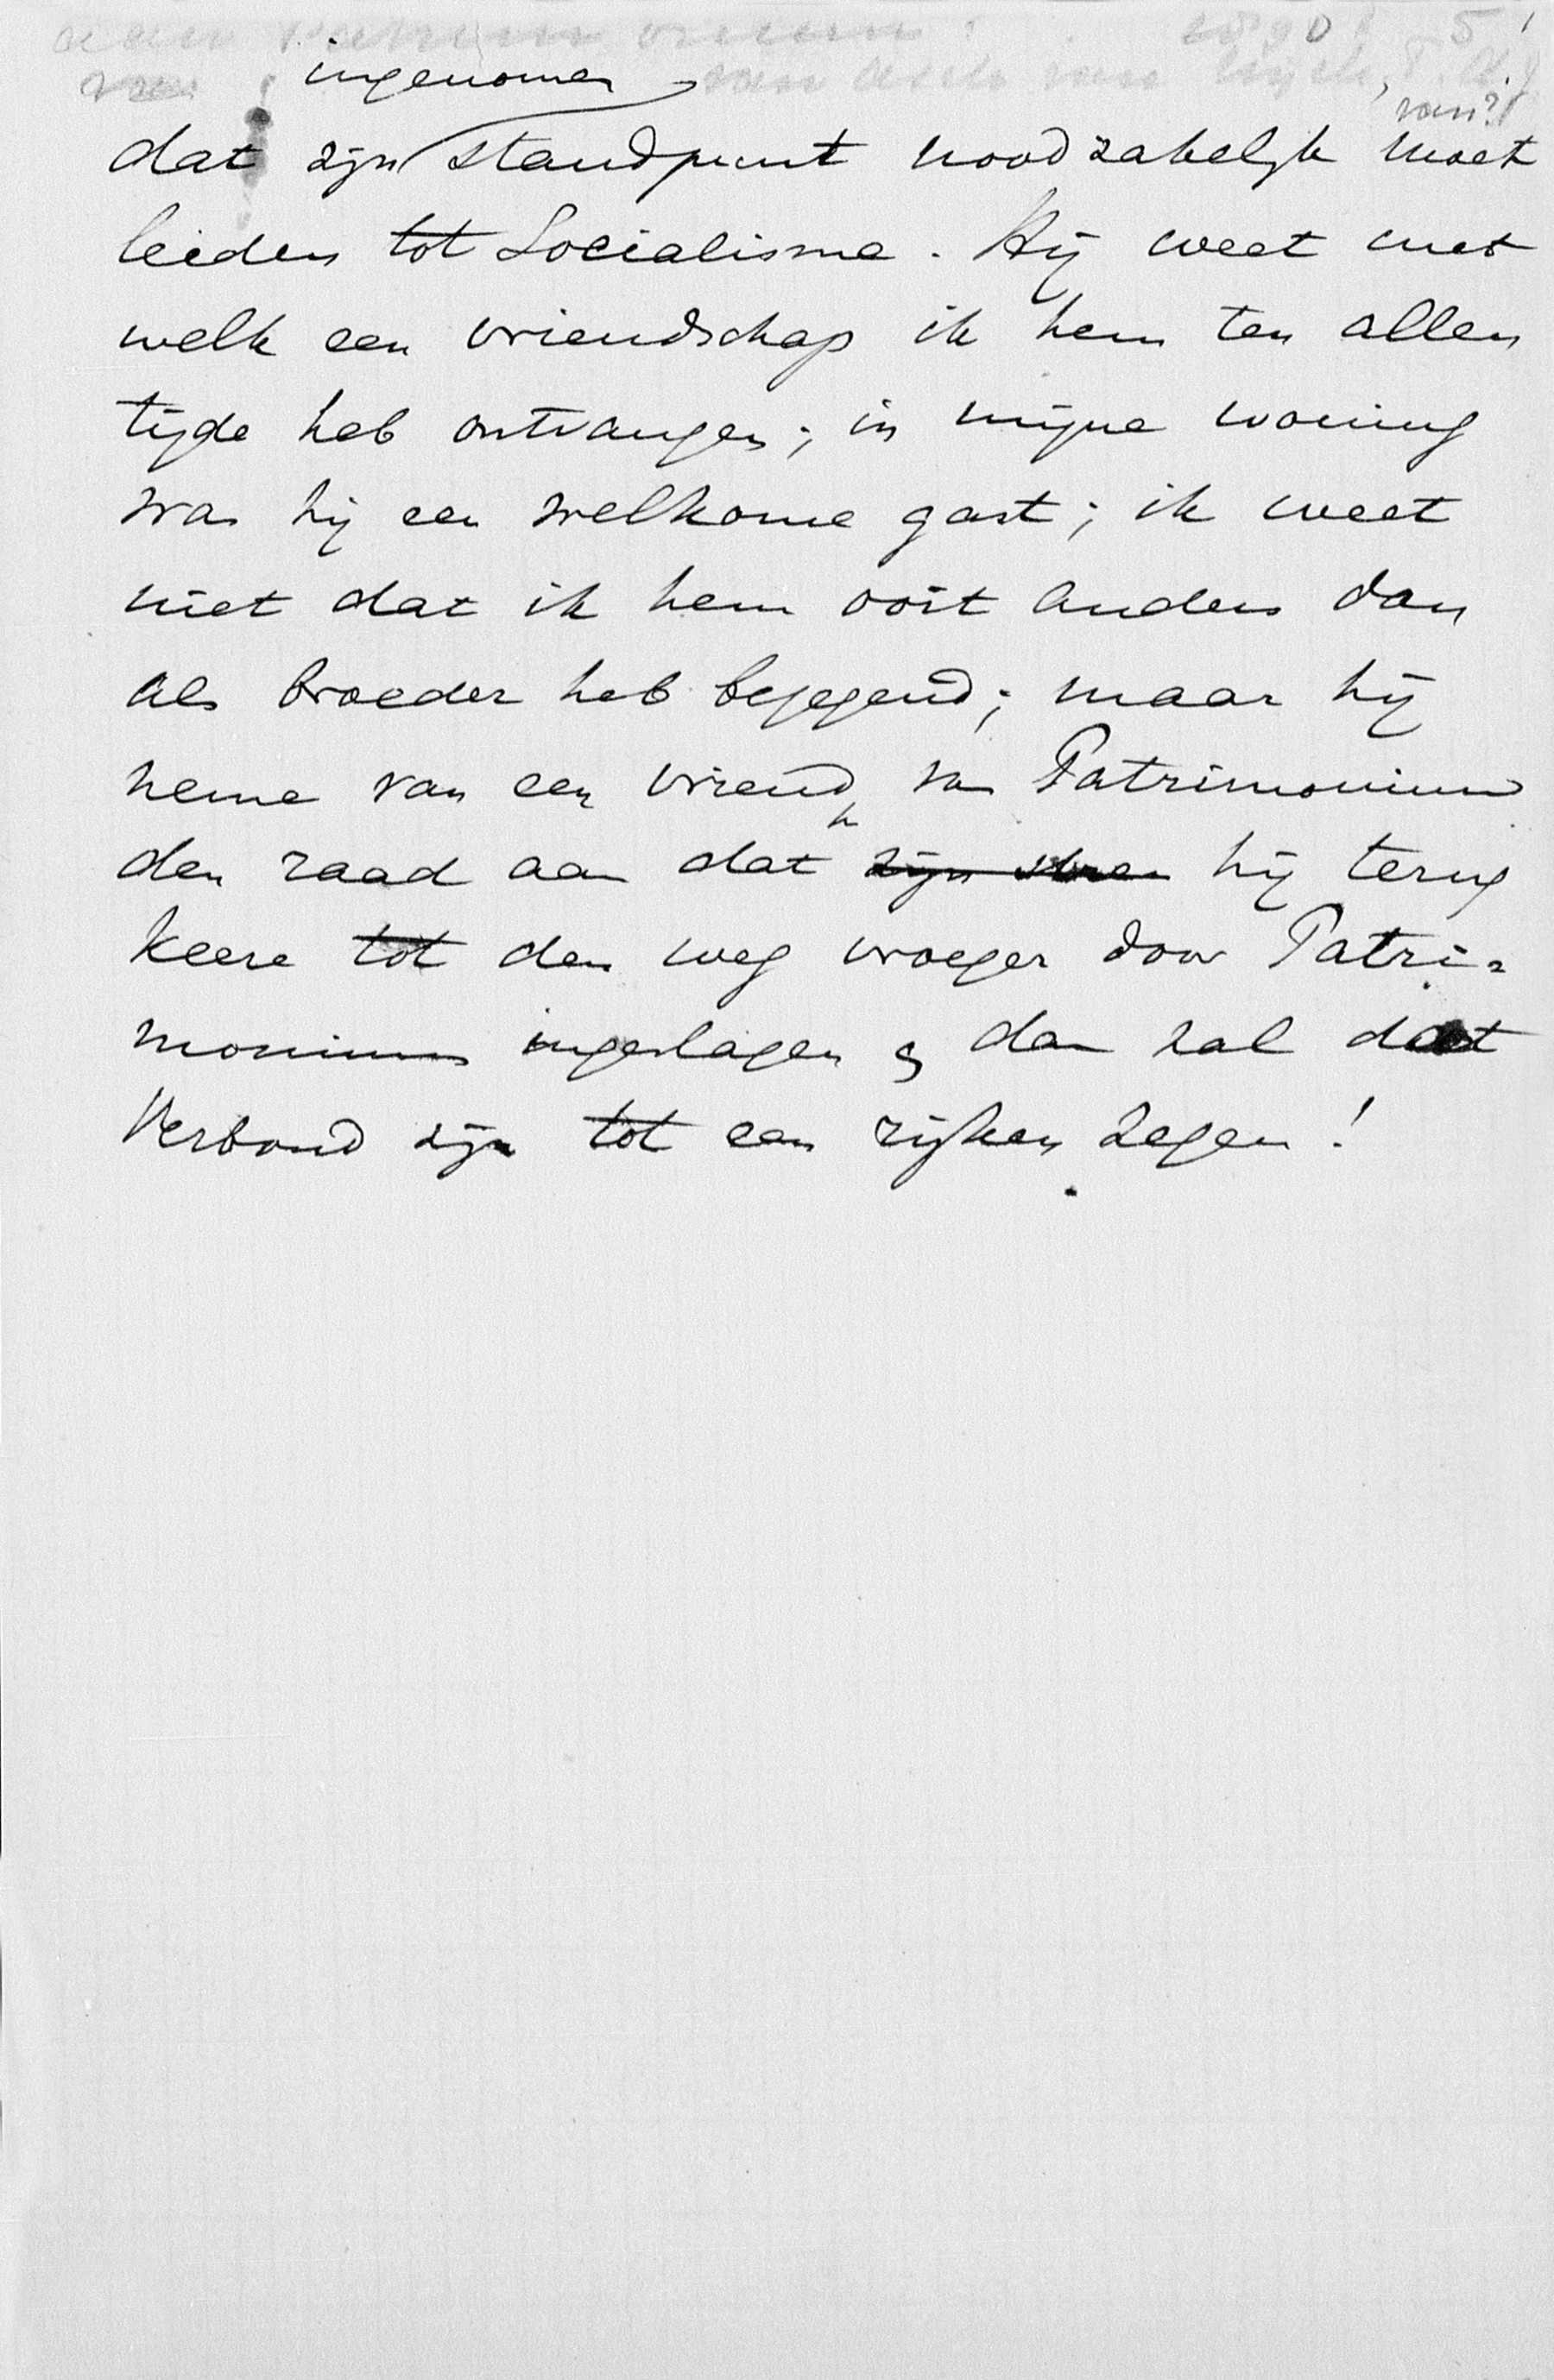 ingenomen
van?
dat zijn standpunt noodzakelijk moet
leiden tot Socialisme. Hij weet met
welk een vriendschap ik hem ten allen
tijde heb ontvangen; in mijne woning
was hij een welkome gast; ik weet
niet dat ik hem ooit anders dan
als broeder heb bejegend; maar hij
neme van een vriend van Patrimonium
den raad aan dat zijn hij terug
keere tot den weg vroeger door Patri-
monium ingeslagen & dan zal dat
Verbond zijn tot een rijken zegen!